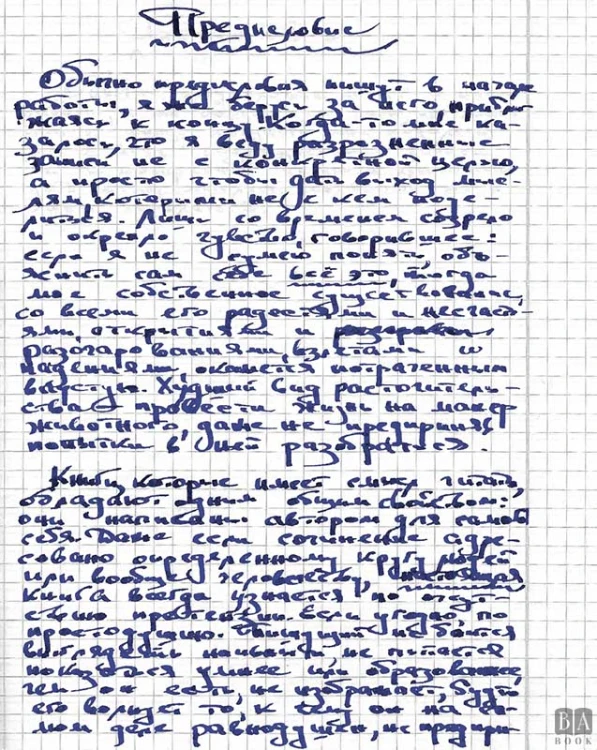 Предисловие
Обычно предисловия пишут в начале
работы, я же берусь за него прибли-
жаясь к концу. Когда-то мне ка-
залось, что я веду разрозненные
записи не с конкретной целью,
а просто чтобы дать выход мыс-
лям, которыми не с кем поде-
литься. Лишь со временем созрело
и окрепло чувство, говорившее:
если я не сумею понять, объ-
яснить сам себе всё это, тогда
мое собственное существование,
со всеми его радостями и несчасть-
ями, открытиями и
разочарованиями, взлетами и
падениями, окажется потраченным
впустую. Худший вид расточитель-
ства – провести жизнь на манер
животного, даже не предприняв
попытки в ней разобраться.
Книги, которые имеет смысл читать,
обладают одним общим свойством:
они написаны автором для самого
себя. Даже если сочинение адре-
совано определенному кругу людей
или вообще человечеству, настоящая
книга всегда узнается по отсут-
ствию претензии. Если угодно, по
простодушию. Пишущий не боится
выглядеть наивным, не пытается
показаться умнее или образованнее,
чем он есть, не изображает, будто
его волнует то, к чему он на са-
мом деле равнодушен, не предпри-
BA
BOOK